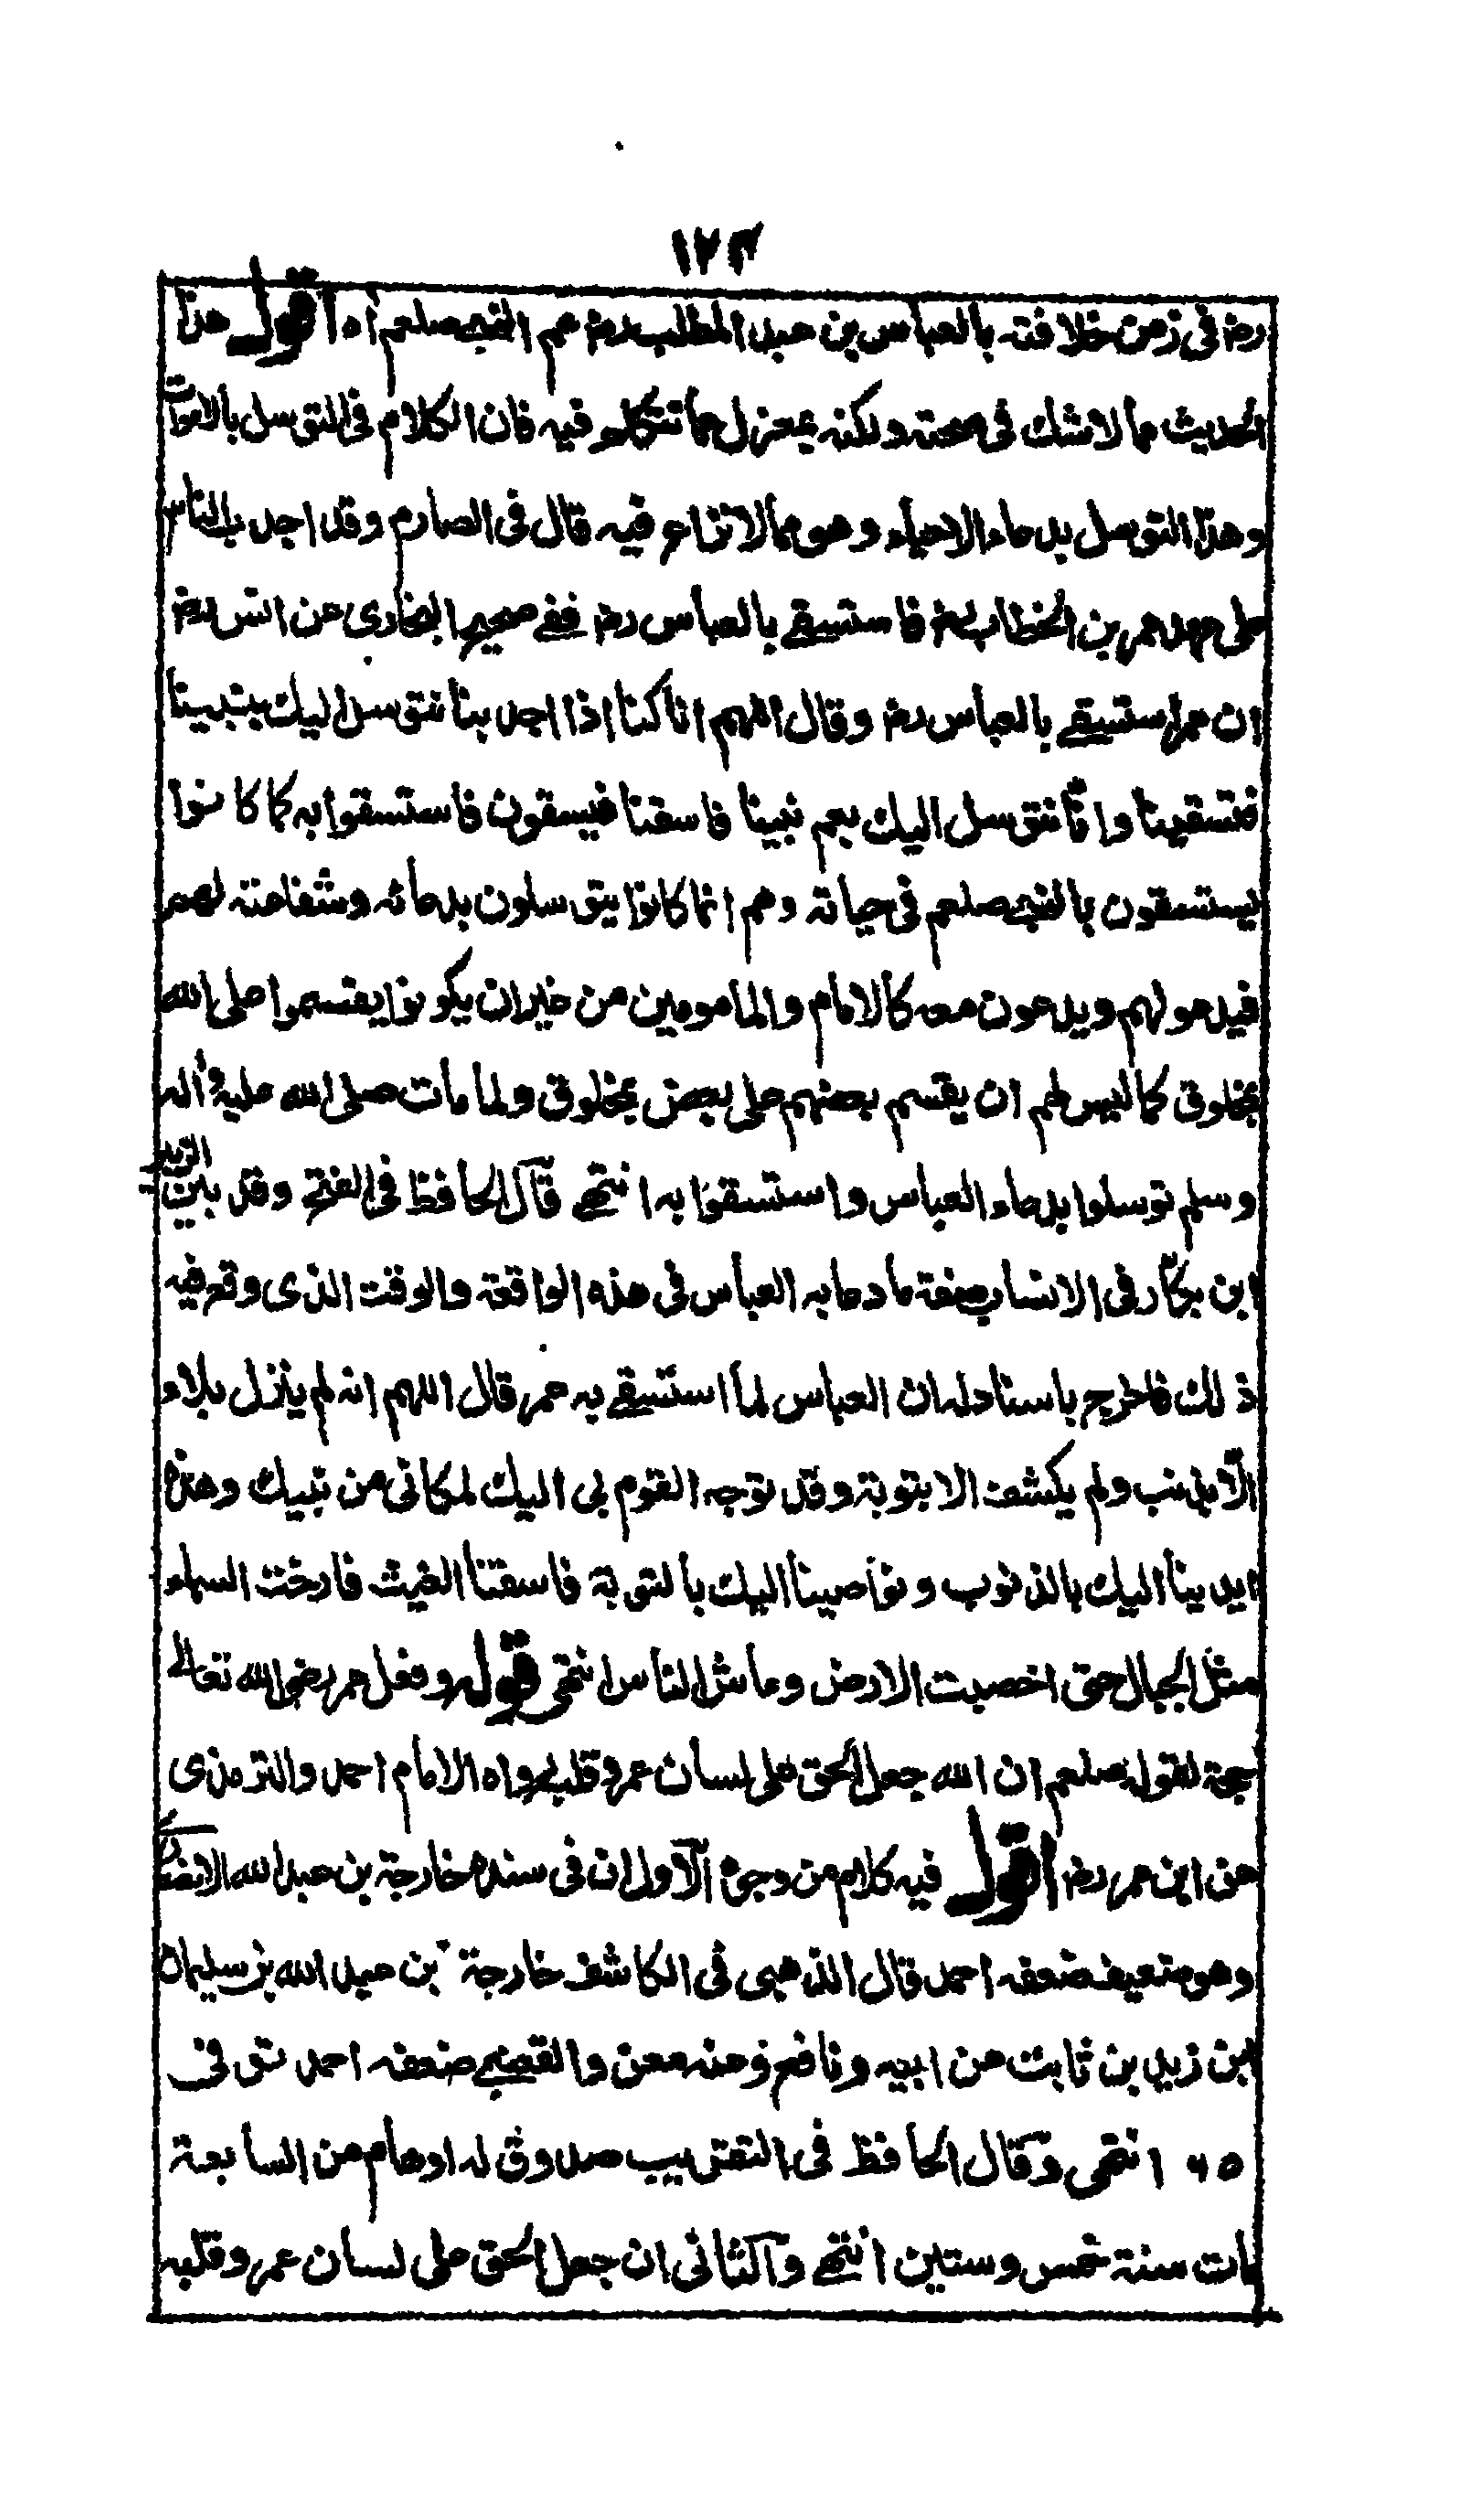 ١٢٣
رضہ فى زمن خلافته بالعباس بن عبد المطلب رضہ عم النبى صلعم اه اقول هذا
الحديث مما لا شك فى صحته ولكنه بمعزل عما نتكلم فيه فان الكلام فى التوسل بالاموات
وهذا التوسل بدعاء الاحياء وهو مما لا نزاع فيه قال فى الصارم وقد اجدب الناس
على عهد عمر بن الخطاب رضہ فاستسقى بالعباس رضہ ففى صحيح البخارى عن انس رضہ
ان عمر استسقى بالعباس رضہ وقال اللهم انا كنا اذا اجدبنا نتوسل اليك بنبينا
فتسقينا وانا نتوسل اليك بعم نبينا فاسقنا فيسقون فاستسقوا به كما كانوا
يستسقون بالنبى صلعم فى حياته وهم انما كانوا يتوسلون بدعائه وشفاعته لهم
فيدعو لهم ويدعون معه كالامام والمامومين من غير ان يكونوا يقسموا على الله
بمخلوق كما ليس لهم ان يقسم بعضهم على بعض بمخلوق ولما مات صلى الله عليه واله
وسلم توسلوا بدعاء العباس واستسقوا به انتهى قال الحافظ فى الفتح وقد بين الزبير
ابن بكار فى الانساب صفة ما دعا به العباس فى هذه الواقعة والوقت الذى وقع فيه
ذلك فاخرج باسناد له ان العباس لما استسقى به عمر قال اللهم انه لم ينزل بلاء
الا بذنب ولم يكشف الا بتوبة وقد توجه القوم بى اليك لمكانى من نبيك وهذه
ايدينا اليك بالذنوب ونواصينا اليك بالتوبة فاسقنا الغيث فارخت السماء
مثل الجبال حتى اخصبت الارض وعاش الناس انتهى قوله وفعل عمر رضى الله تعالى
حجة لقوله صلعم ان الله جعل الحق على لسان عمر وقلبه رواه الامام احمد والترمذى
عن ابن عمر رضہ اقول فيه كلام من وجوه الاول ان فى سنده خارجة بن عبد الله الانصارى
وهو ضعيف ضعفه احمد قال الذهبى فى الكاشف خارجة بن عبد الله بن سليمان
ابن زيد بن ثابت عن ابيه ونافع وعنه معن والقعنبى ضعفه احمد توفى
٦٥ ١ انتهى وقال الحافظ فى التقريب صدوق له اوهام من السابعة
مات سنة خمس وستين انتهى والثانى ان جعل الحق على لسان عمر وقلبه